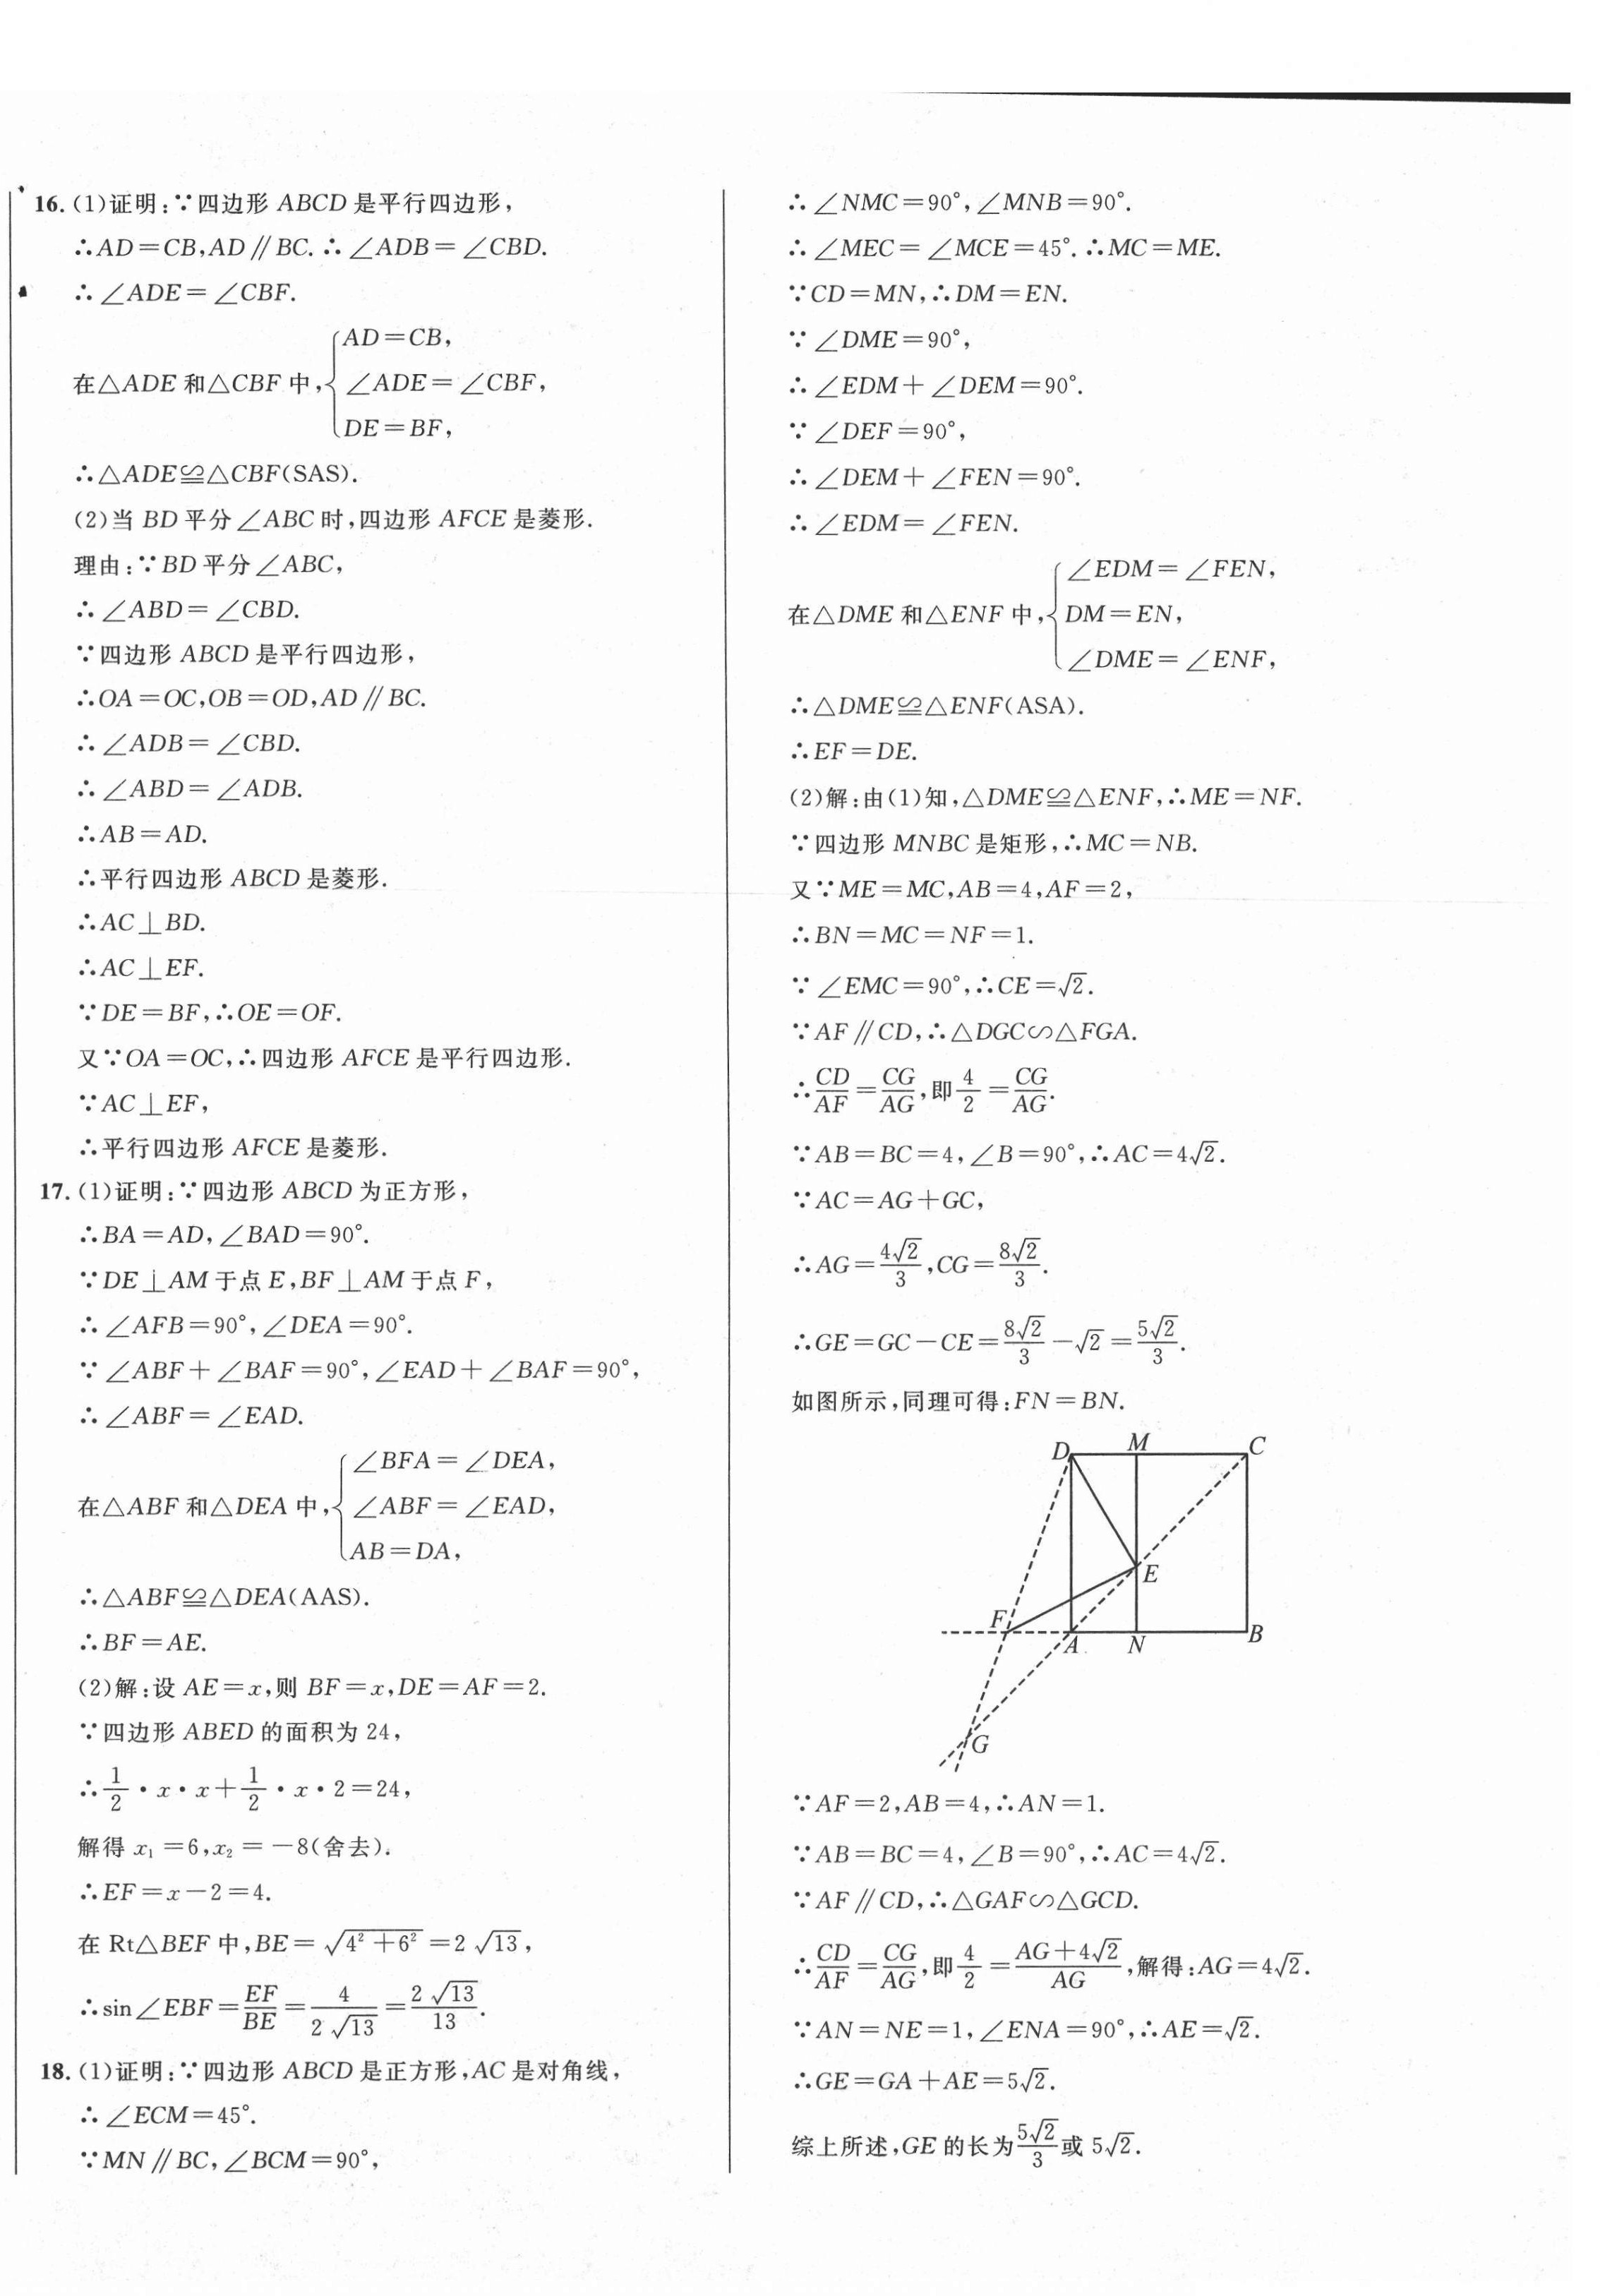 16. (1)证明:∵四边形 ABCD 是平行四边形,
∴AD=CB,AD∥BC.∴∠ADB=∠CBD.
∴∠ADE=∠CBF.
在△ADE 和△CBF 中,{AD=CB,
∠ADE=∠CBF,
DE=BF,
∴△ADE≌△CBF(SAS).
(2)当 BD 平分∠ABC 时,四边形 AFCE 是菱形.
理由:∵BD 平分∠ABC,
∴∠ABD=∠CBD.
∵四边形 ABCD 是平行四边形,
∴OA=OC,OB=OD,AD∥BC.
∴∠ADB=∠CBD.
∴∠ABD=∠ADB.
∴AB=AD.
∴平行四边形 ABCD 是菱形.
∴AC⊥BD.
∴AC⊥EF.
∵DE=BF,∴OE=OF.
又∵OA=OC,∴四边形 AFCE 是平行四边形.
∵AC⊥EF,
∴平行四边形 AFCE 是菱形.
17. (1)证明:∵四边形 ABCD 为正方形,
∴BA=AD,∠BAD=90°.
∵DE⊥AM 于点 E,BF⊥AM 于点 F,
∴∠AFB=90°,∠DEA=90°.
∵∠ABF+∠BAF=90°,∠EAD+∠BAF=90°,
∴∠ABF=∠EAD.
在△ABF 和△DEA 中,{∠BFA=∠DEA,
∠ABF=∠EAD,
AB=DA,
∴△ABF≌△DEA(AAS).
∴BF=AE.
(2)解:设 AE=x,则 BF=x,DE=AF=2.
∵四边形 ABED 的面积为 24,
∴1/2·x·x+1/2·x·2=24,
解得 x₁=6,x₂=-8(舍去).
∴EF=x-2=4.
在 Rt△BEF 中,BE=√(4²+6²)=2√13,
∴sin∠EBF=EF/BE=4/(2√13)=2√13/13.
18. (1)证明:∵四边形 ABCD 是正方形,AC 是对角线,
∴∠ECM=45°.
∵MN∥BC,∠BCM=90°,
∴∠NMC=90°,∠MNB=90°.
∴∠MEC=∠MCE=45°.∴MC=ME.
∵CD=MN,∴DM=EN.
∵∠DME=90°,
∴∠EDM+∠DEM=90°.
∵∠DEF=90°,
∴∠DEM+∠FEN=90°.
∴∠EDM=∠FEN.
在△DME 和△ENF 中,{∠EDM=∠FEN,
DM=EN,
∠DME=∠ENF,
∴△DME≌△ENF(ASA).
∴EF=DE.
(2)解:由(1)知,△DME≌△ENF,∴ME=NF.
∵四边形 MNBC 是矩形,∴MC=NB.
又∵ME=MC,AB=4,AF=2,
∴BN=MC=NF=1.
∵∠EMC=90°,∴CE=√2.
∵AF∥CD,∴△DGC∽△FGA.
∴CD/AF=CG/AG,即4/2=CG/AG.
∵AB=BC=4,∠B=90°,∴AC=4√2.
∵AC=AG+GC,
∴AG=4√2/3,CG=8√2/3.
∴GE=GC-CE=8√2/3-√2=5√2/3.
如图所示,同理可得:FN=BN.
D M C
E
F A N B
G
∵AF=2,AB=4,∴AN=1.
∵AB=BC=4,∠B=90°,∴AC=4√2.
∵AF∥CD,∴△GAF∽△GCD.
∴CD/AF=CG/AG,即4/2=(AG+4√2)/AG,解得:AG=4√2.
∵AN=NE=1,∠ENA=90°,∴AE=√2.
∴GE=GA+AE=5√2.
综上所述,GE 的长为5√2/3或 5√2.